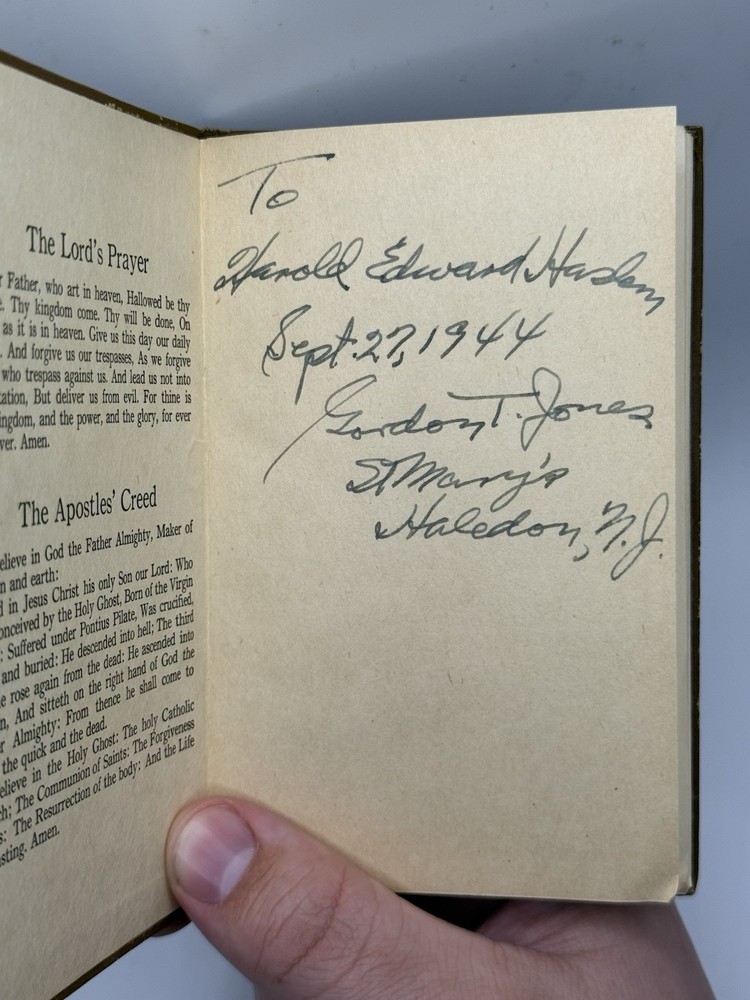 The Lord's Prayer
r Father, who art in heaven, Hallowed be thy
e. Thy kingdom come. Thy will be done, On
as it is in heaven. Give us this day our daily
. And forgive us our trespasses, As we forgive
who trespass against us. And lead us not into
tation, But deliver us from evil. For thine is
ingdom, and the power, and the glory, for ever
ver. Amen.
The Apostles' Creed
elieve in God the Father Almighty, Maker of
n and earth:
d in Jesus Christ his only Son our Lord: Who
onceived by the Holy Ghost, Born of the Virgin
: Suffered under Pontius Pilate, Was crucified,
and buried: He descended into hell; The third
e rose again from the dead: He ascended into
n, And sitteth on the right hand of God the
r Almighty: From thence he shall come to
the quick and the dead.
elieve in the Holy Ghost: The holy Catholic
ch; The Communion of Saints: The Forgiveness
s: The Resurrection of the body: And the Life
asting. Amen.
To
Harold Edward Haslem
Sept. 27, 1944
Gordon T. Jones
St Mary's
Haledon, N.J.